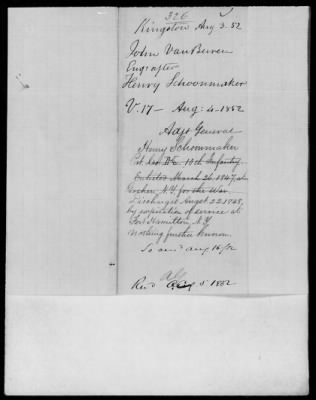 326
Kingston Aug 3. 52
John VanBuren
Enq. after
Henry Schoonmaker
V. 17 — Aug: 4. 1852
Adjt General
Henry Schoonmaker
Pvt. 10th Infantry
Enlisted March 26. 1847, at
Goshen, N.Y. for the War
Discharged Augst 22 1848,
by expiration of service at
Fort Hamilton, N.Y.
Nothing further known.
So ansd Aug 16/52
Recd Aug 5 1852